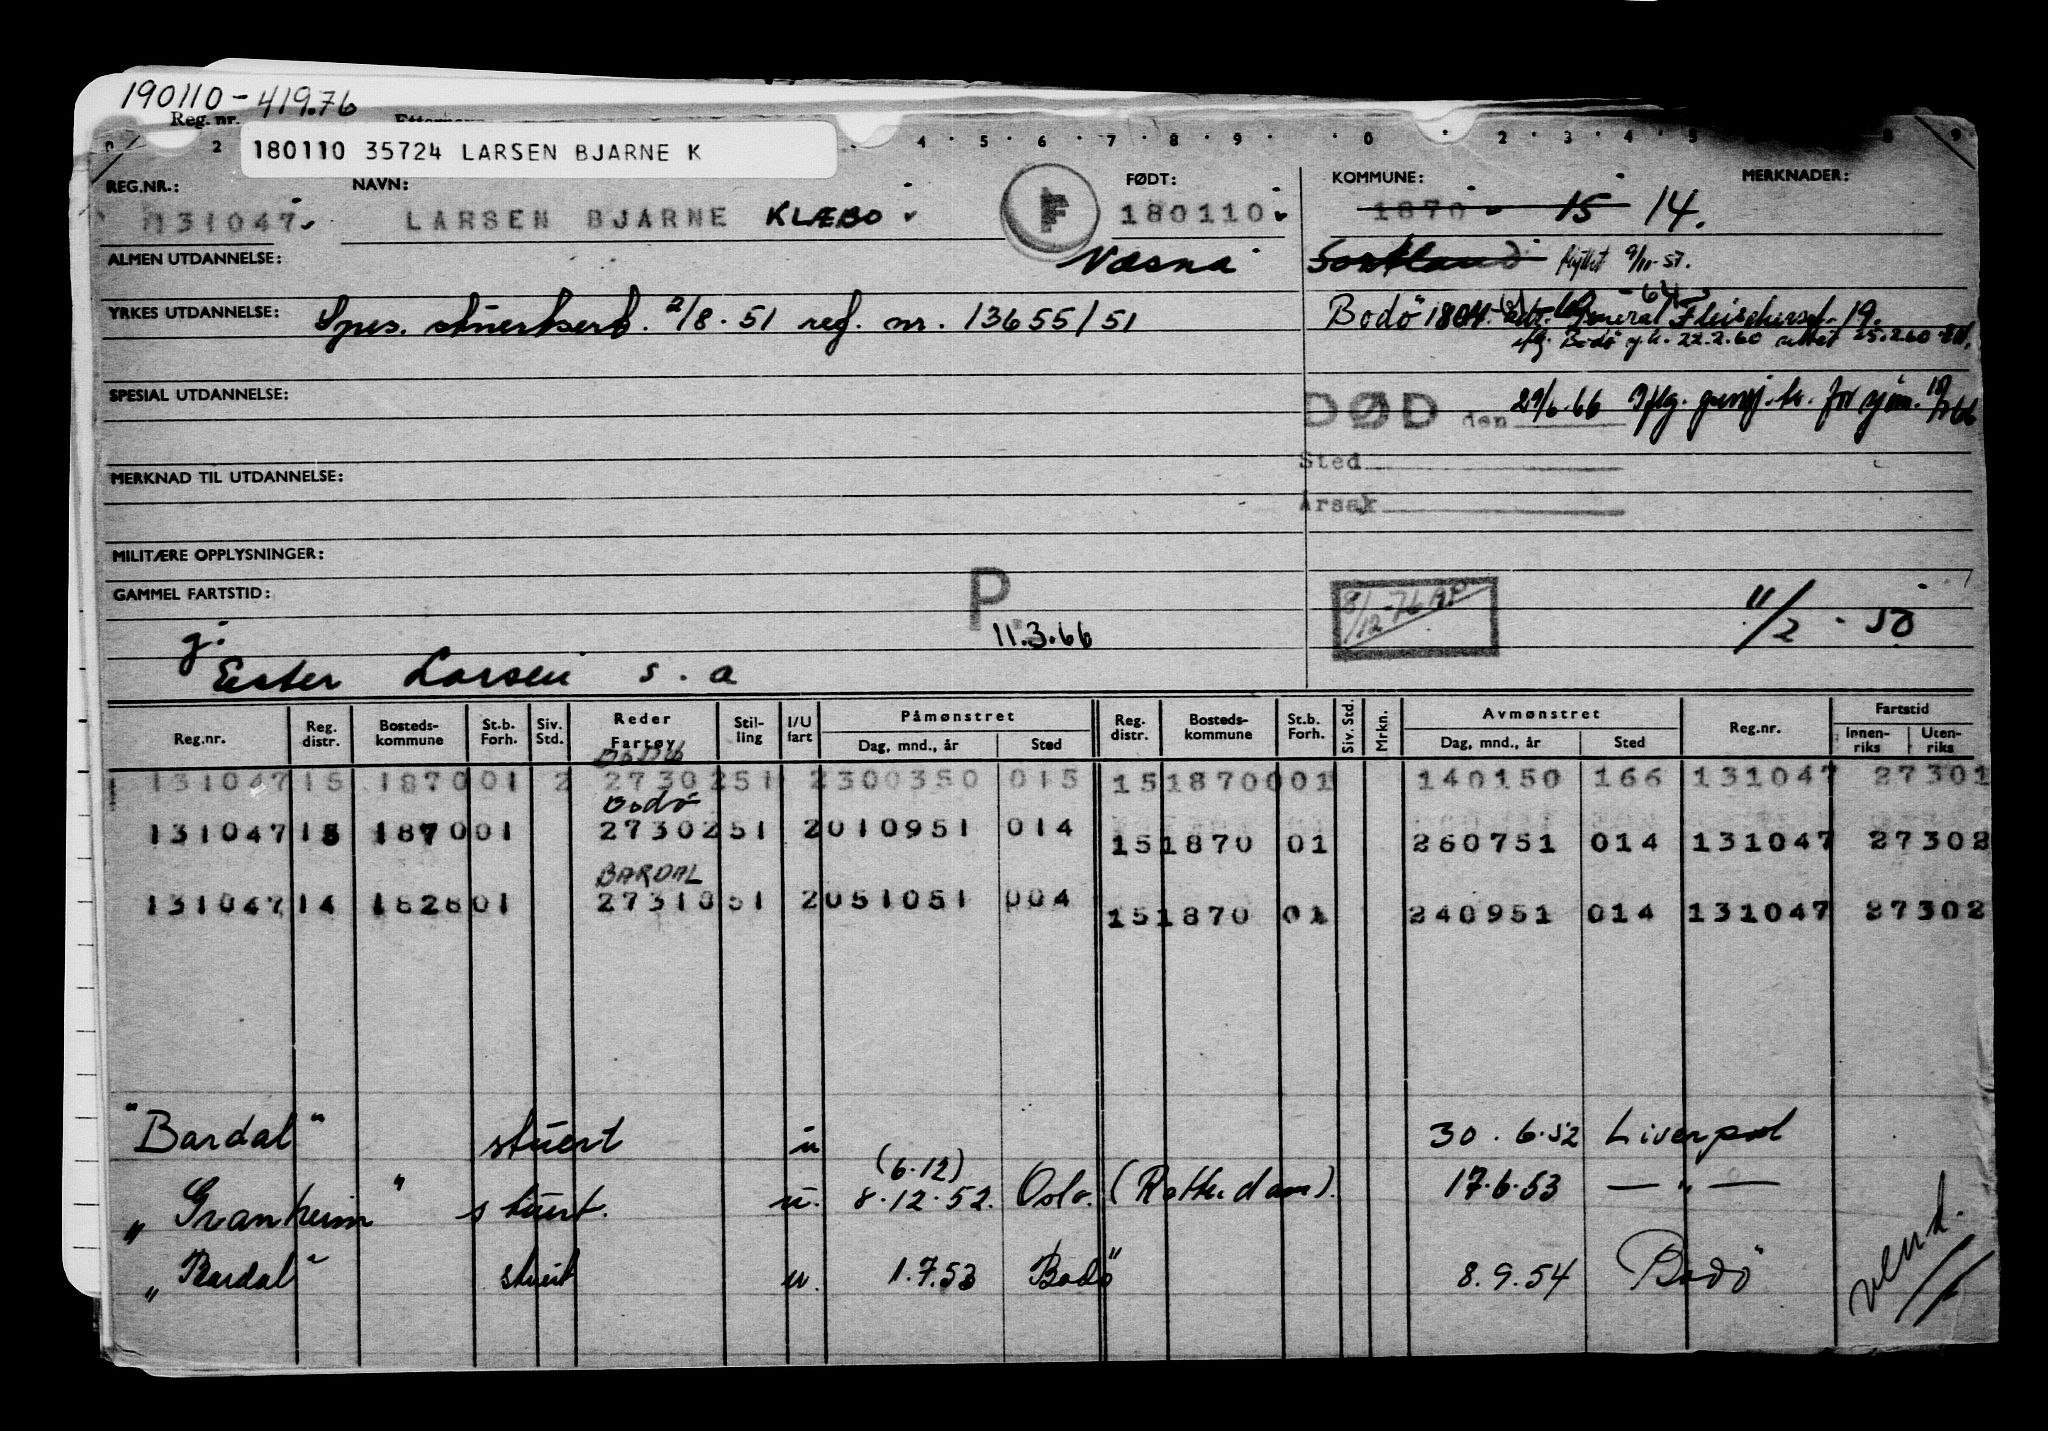 190110-41976
Reg. nr.
180110 35724 LARSEN BJARNE K
2 4 5 6 7 8 9 0 2 3 4 5 8 9
REG.NR.: NAVN: FØDT: KOMMUNE: MERKNADER:
131047 LARSEN BJARNE KLÆBO F 180110 1870 15 14.
ALMEN UTDANNELSE: Sortland flyttet 9/11-57.
YRKES UTDANNELSE: Spes. stuertsert. 2/8.51 reg. nr. 13655/51 Bodö 1804 General Fleischersgt. 19.
Bodö 22.2.60 25.2.60
SPESIAL UTDANNELSE: DØD den 29/6.66
Sted
MERKNAD TIL UTDANNELSE:
Årsak
MILITÆRE OPPLYSNINGER:
GAMMEL FARTSTID: P 8/12-76 11/2-50
g: 11.3.66
Ester Larsen s.a
Reg.nr. Reg. distr. Bosteds-kommune St.b. Forh. Siv. Std. Reder Fartøy Stil-ling I/U fart Påmønstret Dag, mnd., år Sted Reg. distr. Bosteds-kommune St.b. Forh. Siv. Std. Mrkn. Avmønstret Dag, mnd., år Sted Reg.nr. Fartstid Innen-riks Uten-riks
131047 15 1870 01 2 27302 51 2 300350 015 15 1870 01 140150 166 131047 27301
Bodö
131047 15 1870 01 27302 51 2 010951 014 15 1870 01 260751 014 131047 27302
BARDAL
131047 14 1828 01 27310 51 2 051051 004 15 1870 01 240951 014 131047 27302
"Bardal" stuert u 30.6.52 Liverpool
(6.12)
"Granheim" stuert. u. 8.12.52. Oslo. (Rotterdam). 17.6.53 — " —
"Bardal" stuert u. 1.7.53 Bodö 8.9.54 Bodö
vend.